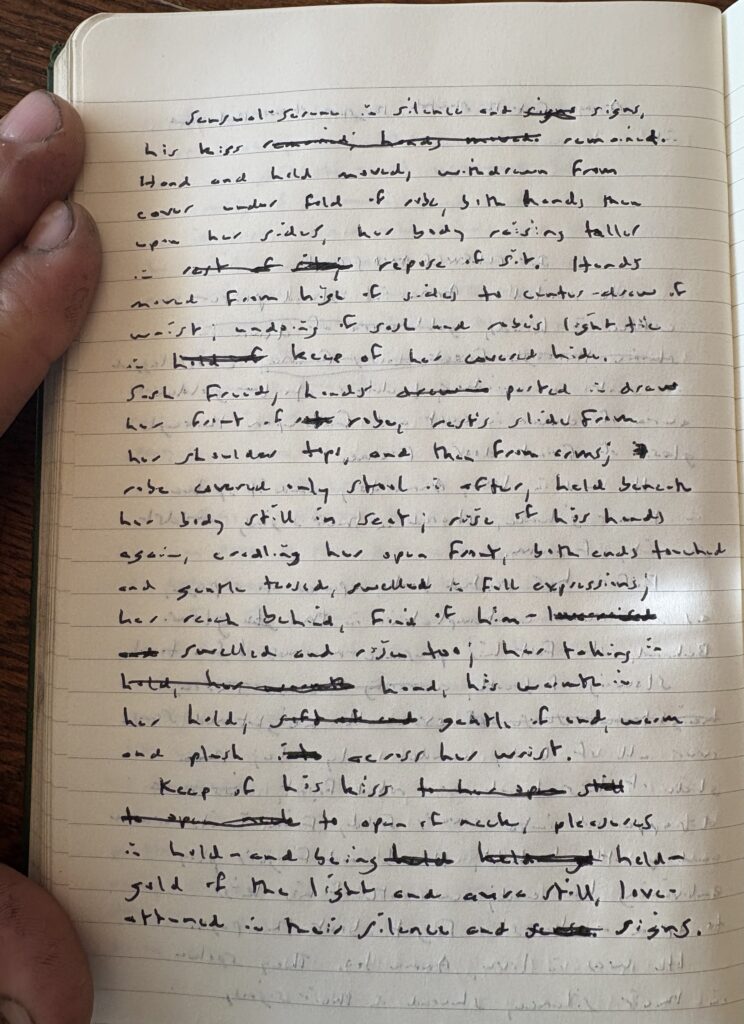 Sensual-serene in silence and signs signs,
his kiss remained; hands moved. remained.
Hand and held moved, withdrawn from
cover under fold of robe, both hands then
upon her sides, her body raising taller
in rest of repose of sit. Hands
moved from high of sides to center-draw of
waist; of sash and robe's light tie
in hold of keep of her covered hide.
Sash freed, hands drawn in parted in draw
her front of robe, rest's slide from
her shoulder tops, and then from arms;
robe covered only stool in after, held beneath
her body still in seat; rise of his hands
again, cradling her open front, both ends touched
and gentle teased, swelled in full expressions;
her reach behind, find of him-
and swelled and risen too; her taking in
hold, her warmth hand, his warmth in
her hold, soft at end gentle of end, warm
and plush into across her wrist.
Keep of his kiss to her open still
to open neck to open of neck, pleasures
in hold-and being held held-
gold of the light and still, love-
attuned in their silence and signs.